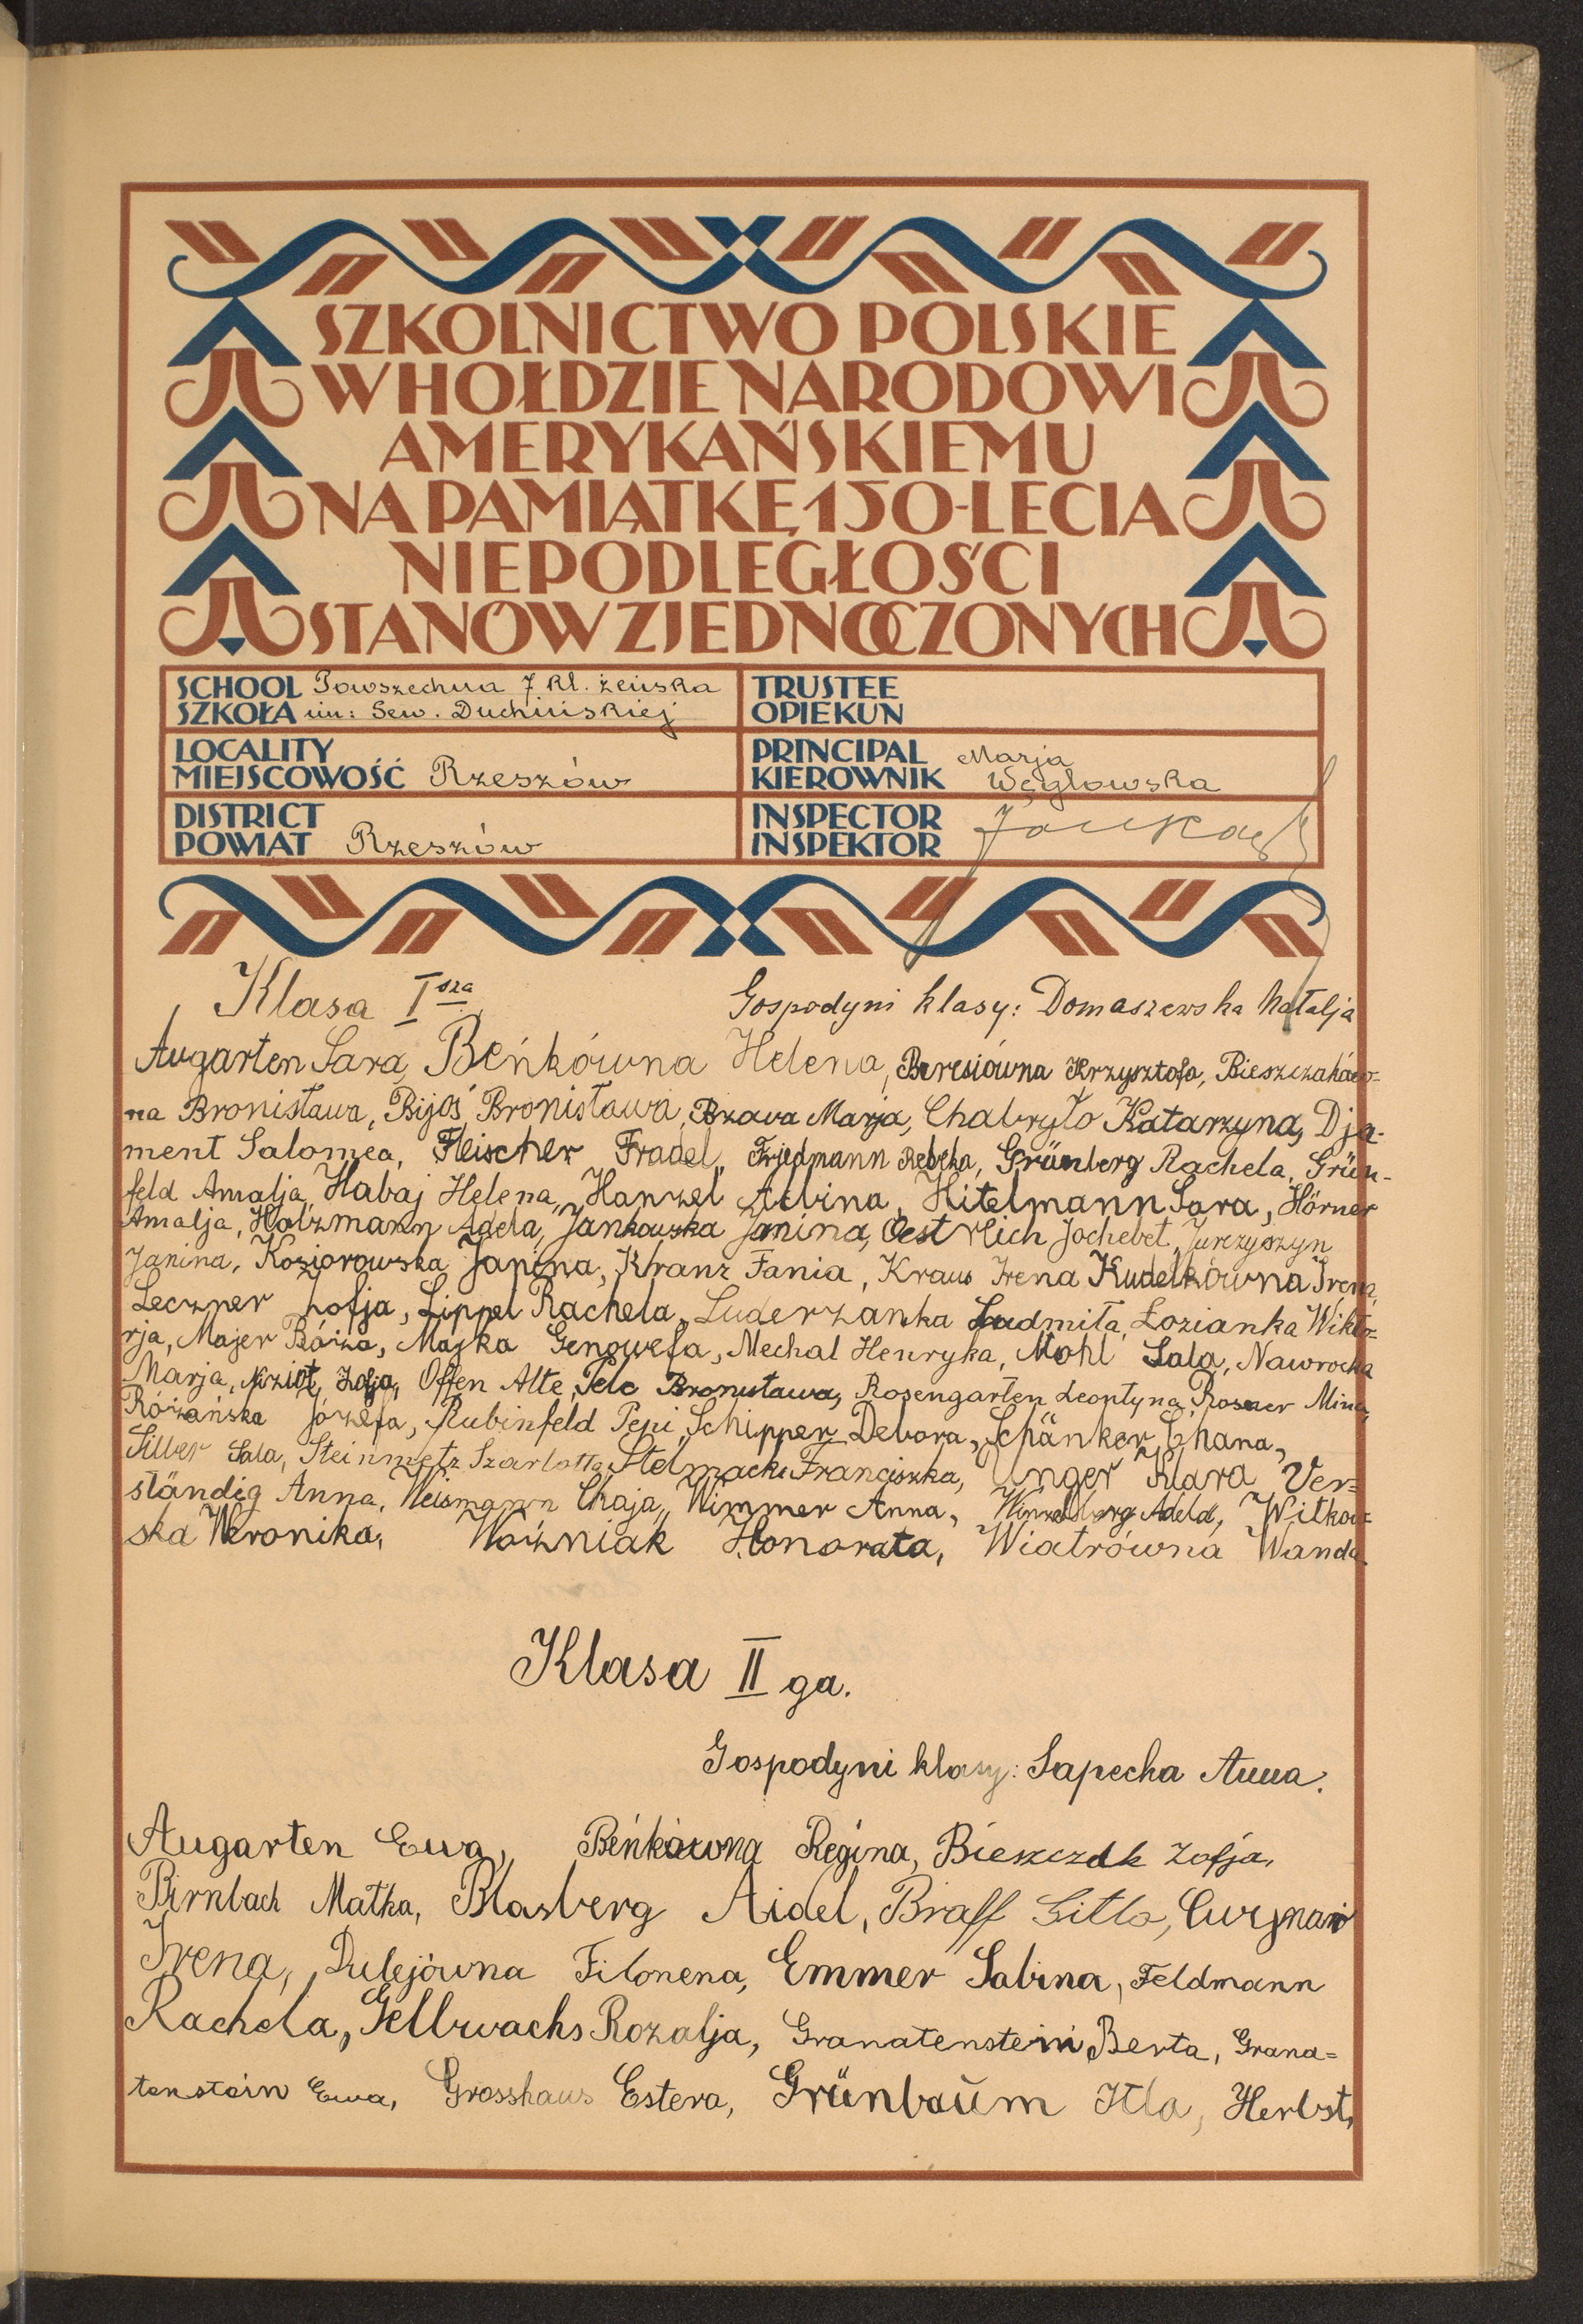 SZKOLNICTWO POLSKIE
W HOŁDZIE NARODOWI
AMERYKAŃSKIEMU
NA PAMIĄTKĘ 150-LECIA
NIEPODLEGŁOŚCI
STANÓW ZJEDNOCZONYCH
SCHOOL Powszechna 7 kl. żeńska
SZKOŁA im: Sew. Duchińskiej
TRUSTEE
OPIEKUN
LOCALITY
MIEJSCOWOŚĆ Rzeszów
PRINCIPAL Marja
KIEROWNIK Węglowska
DISTRICT
POWIAT Rzeszów
INSPECTOR
INSPEKTOR
Klasa I sza
Gospodyni klasy: Domaszewska Natalja
Augarten Sara, Beńkówna Helena, Beresiówna Krzysztofa, Bieszczaków=
na Bronisława, Bijoś Bronisława, Bzava Marja, Chabryło Katarzyna, Dja-
ment Salomea, Fleischer Fradel, Frjedmann Rebeka, Grünberg Rachela, Grün-
feld Amalja, Habaj Helena, Hanzel Albina, Hitelmann Sara, Hörner
Amalja, Holzmann Adela, Jankowska Janina, Oestrlich Jochebet, Jurczyszyn
Janina, Koziorowska Janina, Kranz Fania, Kraus Irena Kudelkówna Irena,
Leczner Zofja, Lippel Rachela, Luderzanka Ludmiła, Łozianka Wikto=
rja, Majer Róża, Majka Genowefa, Mechal Henryka, Mohl Sala, Nawrocka
Marja, Zofja, Offen Alte, Pelc Bronisława, Rosengarten Leontyna, Rosner Mina,
Różańska Józefa, Rubinfeld Pepi, Schipper Debora, Schänker Chana,
Silber Sala, Steinmetz Szarlotta, Stelmach Franciszka, Unger Klara, Ver=
ständig Anna, Weismann Chaja, Wimmer Anna, Winzelberg Adela, Witkow=
ska Weronika, Woźniak Honorata, Wiatrówna Wanda
Klasa II ga.
Gospodyni klasy: Sapecha Anna.
Augarten Ewa, Beńkówna Regina, Bieszczak Zofja,
Birnbach Matka, Blasberg Aidel, Braff Gitla, Curzman
Irena, Dulejówna Filonena, Emmer Sabina, Feldmann
Rachela, Gellwachs Rozalja, Granatenstein Berta, Grana=
tenstein Ewa, Grosshaus Estera, Grünbaum Itla, Herbst,